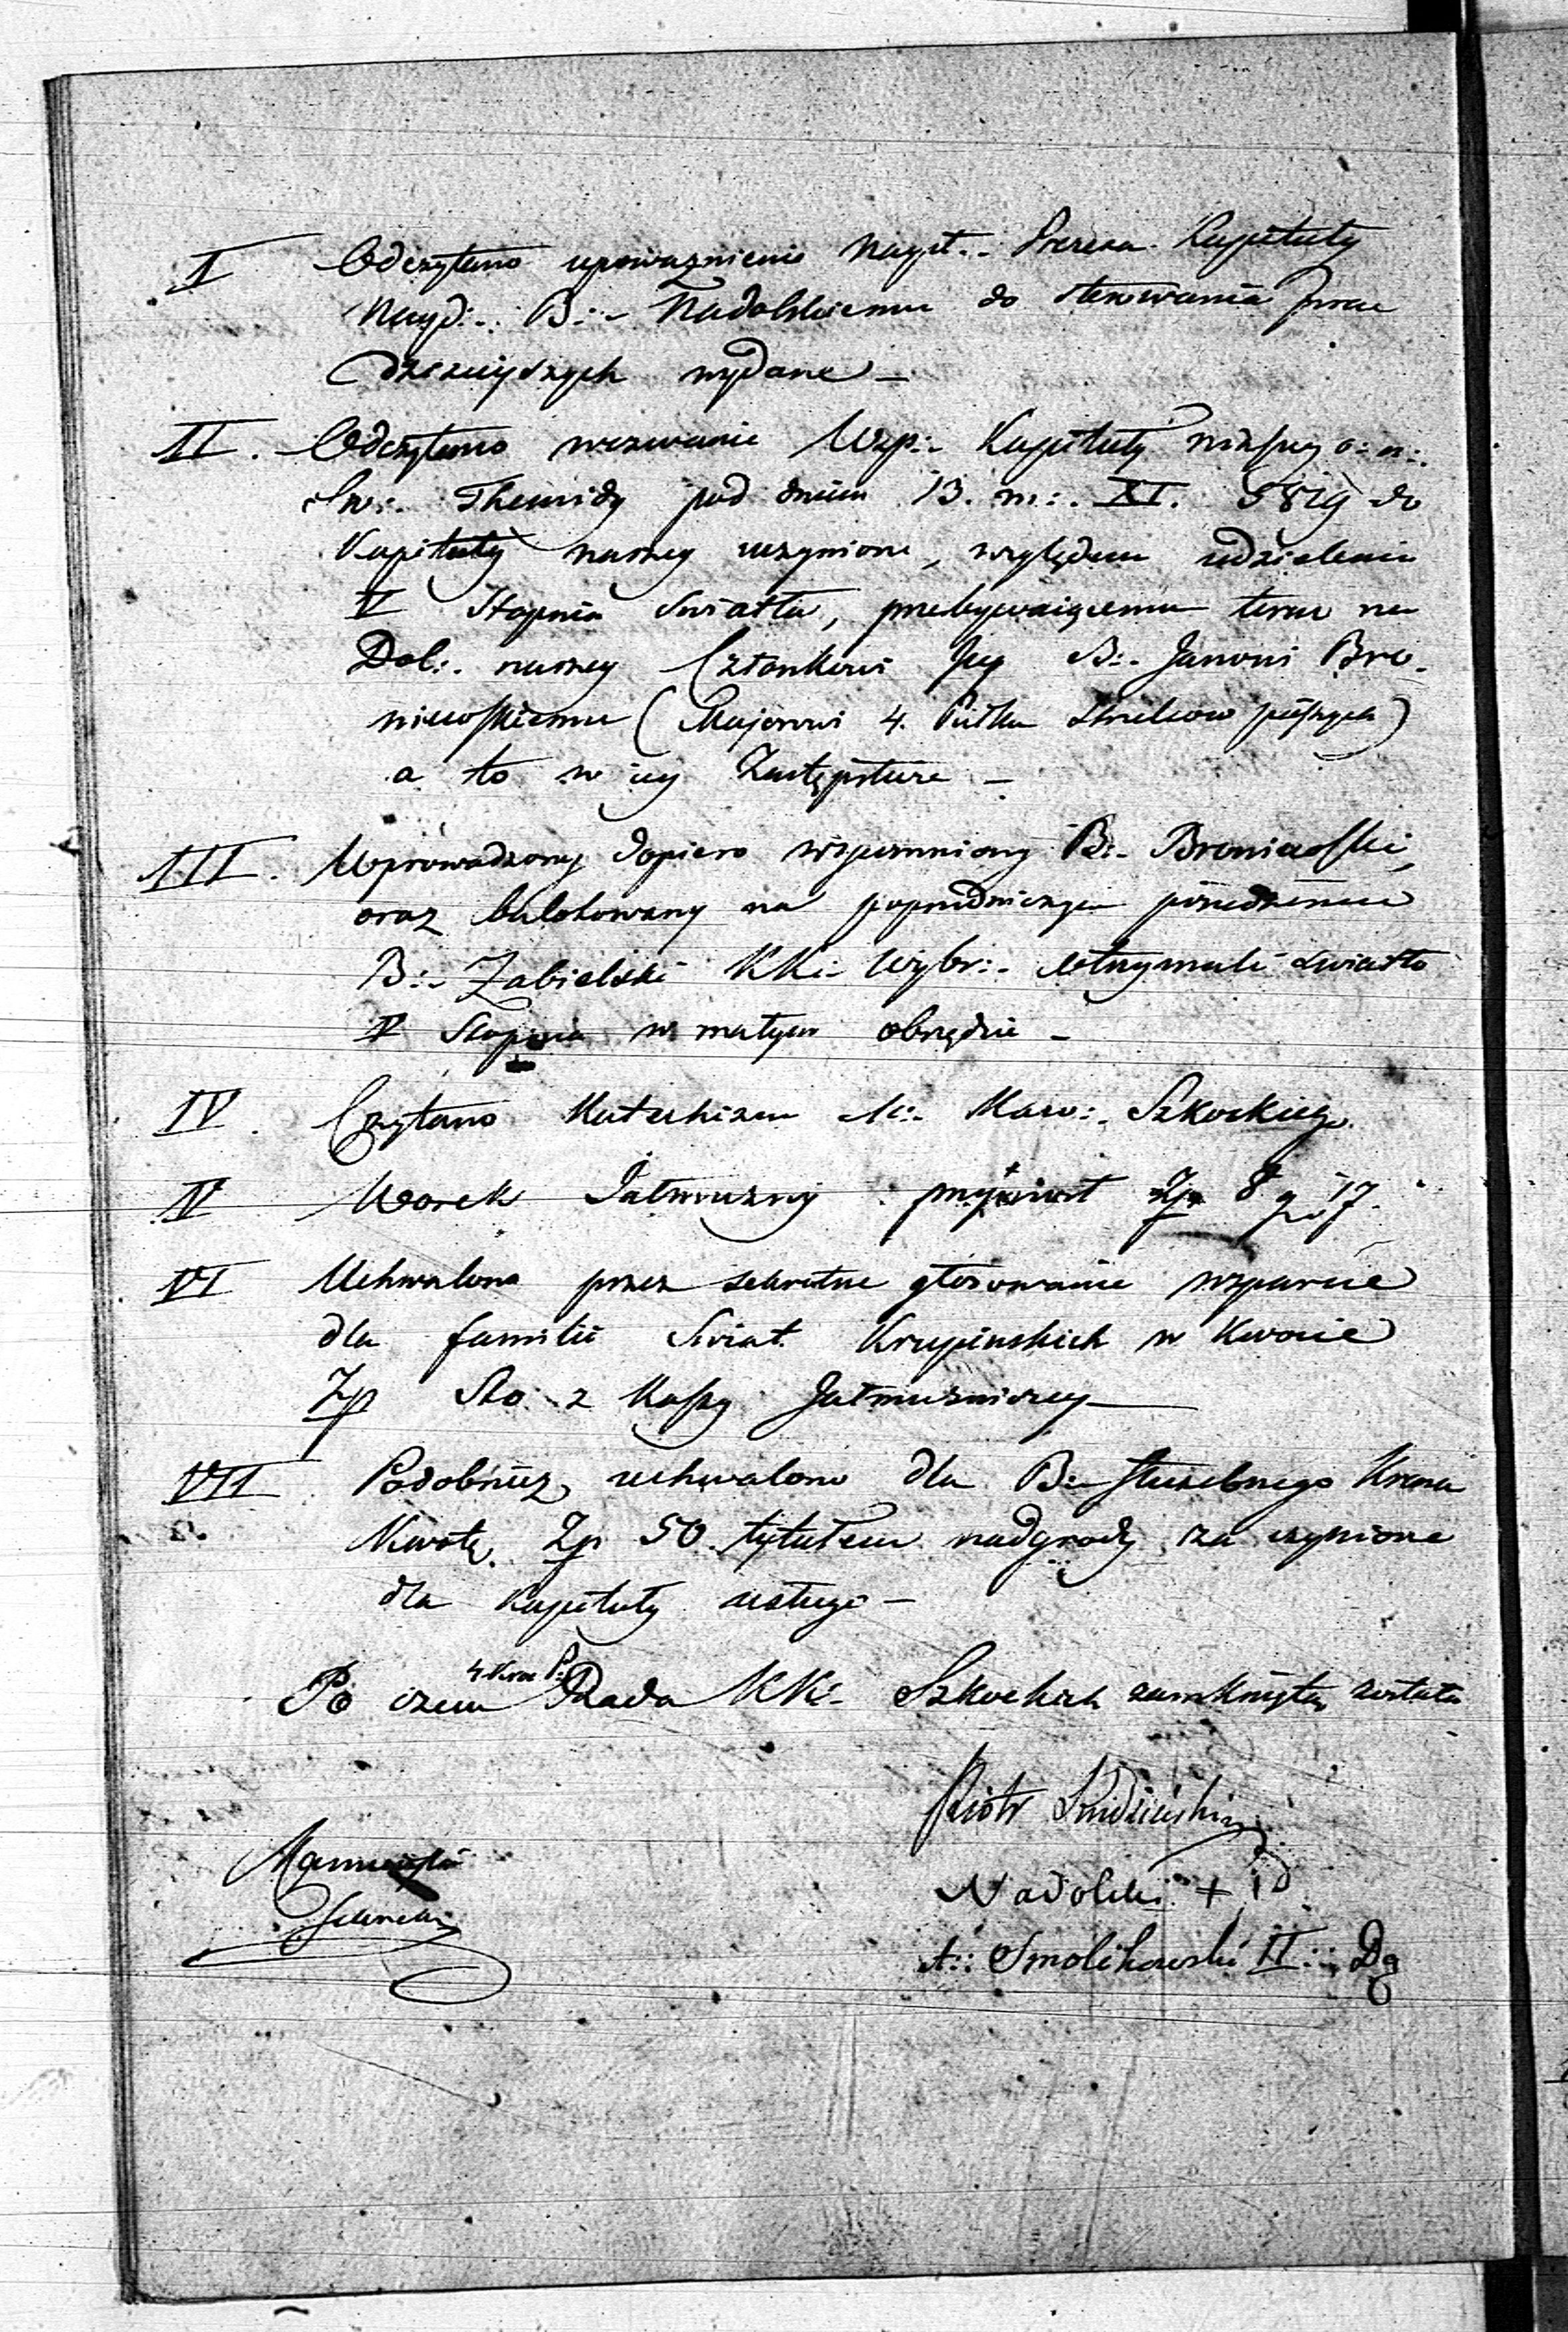 I Odczytano upoważnienie Nayst:. Prezesa Kapituły
Nayd:. B:. Nadolskiemu do sterowania prac
dzisieyszych wydane —
II. Odczytano wezwanie Wzp:. Kapituły niższey o: n:.
Św:. Themidy pod dniem 13. m:. XI. 5819 do
Kapituły naszey uczynione, względem udzielenia
V Stopnia Swiatła, przebywaiącemu teraz na
Dol:. naszey Członkowi Jey B:. Janowi Bro-
niewskiemu (Majorowi 4. Pułku Strzelców pieszych)
a to w iey Zastępstwie —
III. Wprowadzony dopiero wspomniony B:. Broniewski,
oraz balotowany na poprzedniczym posiedzeniu
B:. Zabielski KK:. Wybr:. otrzymali swiatło
V Stopnia w małym obrzędzie —
IV. Czytano Katechizm K:. Kawa:. Szkockiego.
V Worek Jałmużny przyniosł Zp 8 gr 17.
VI Uchwalono przez sekretne głosowanie wsparcie
dla familii Swiat. Krupinskich w kwocie
Zp Sto z Kassy Jałmużniczey —
VII Podobnież uchwalono dla B:. służebnego
Kwotę Zp 50. tytułem nadgrody za czynione
dla Kapituły usługi —
Po czem Rada KK:. Szkockich zamkniętą została
Piotr
Nadolski +
A:. Smolikowski II:. Dg